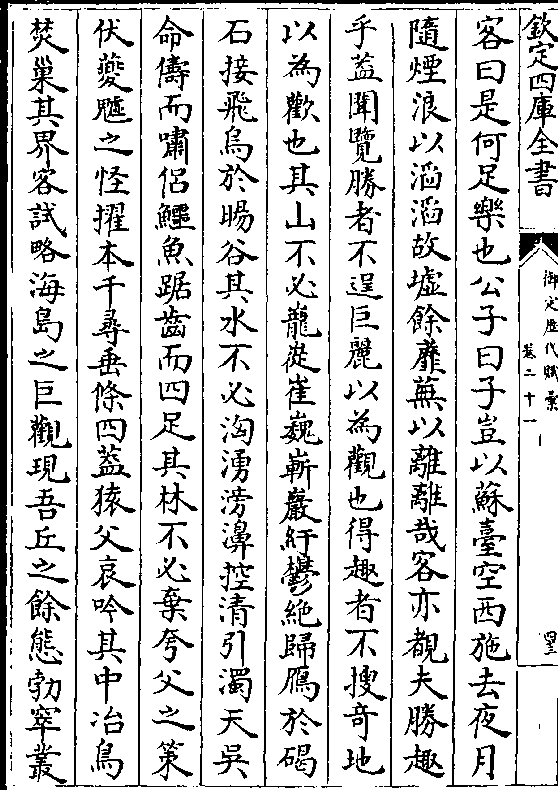 欽定四庫全書
御定歷代賦彙
卷二十一
客曰是何足樂也公子曰子豈以蘇臺空西施去夜月
隨煙浪以滔滔故墟餘蘼蕪以離離哉客亦覩夫勝趣
乎蓋聞覽勝者不逞巨麗以為觀也得趣者不搜奇地
以為歡也其山不必巃嵸崔巍嶄巖紆鬱絶歸鴈於碣
石接飛烏於暘谷其水不必洶湧滂濞控清引濁天吳
命儔而嘯侶鱷魚踞齒而四足其林不必棄夸父之策
伏夔魖之怪擢本千尋垂條四蓋猿父哀吟其中冶鳥
焚巢其界客試略海島之巨觀現吾丘之餘態勃窣叢